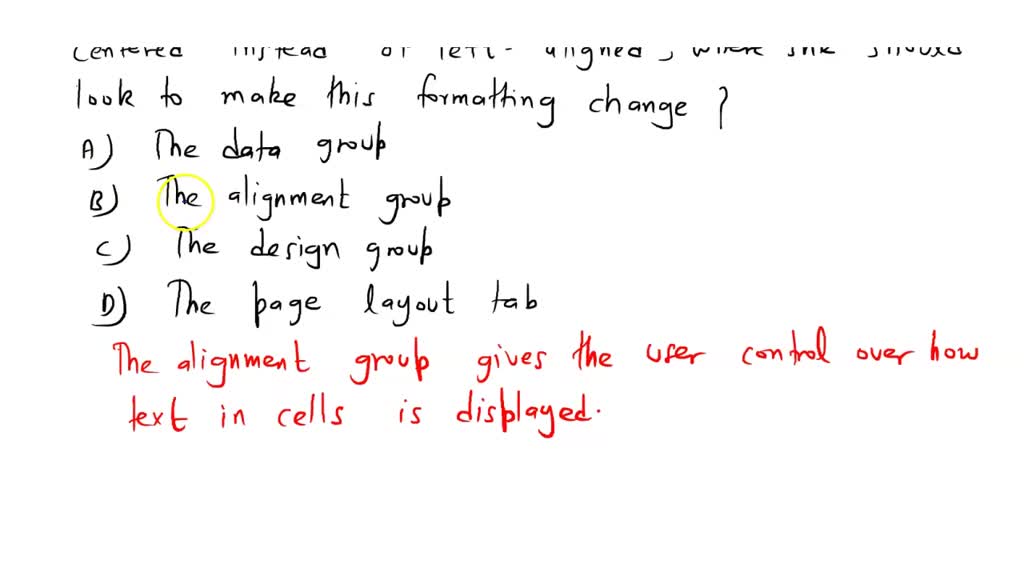 centered instead of left-aligned, where she should
look to make this formatting change?
A) The data group
B) The alignment group
C) The design group
D) The page layout tab
The alignment group gives the user control over how
text in cells is displayed.